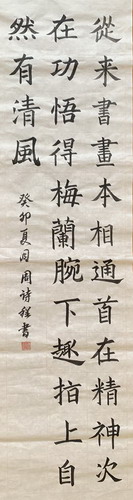 從来書畫本相通首在精神次
在功悟得梅蘭腕下趣指上自
然有清風
癸卯夏同周诗稼書